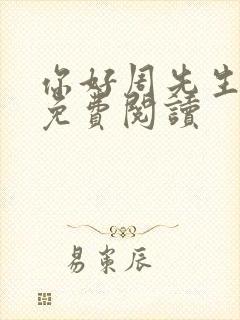 你好周先生
免費閱讀
易東辰